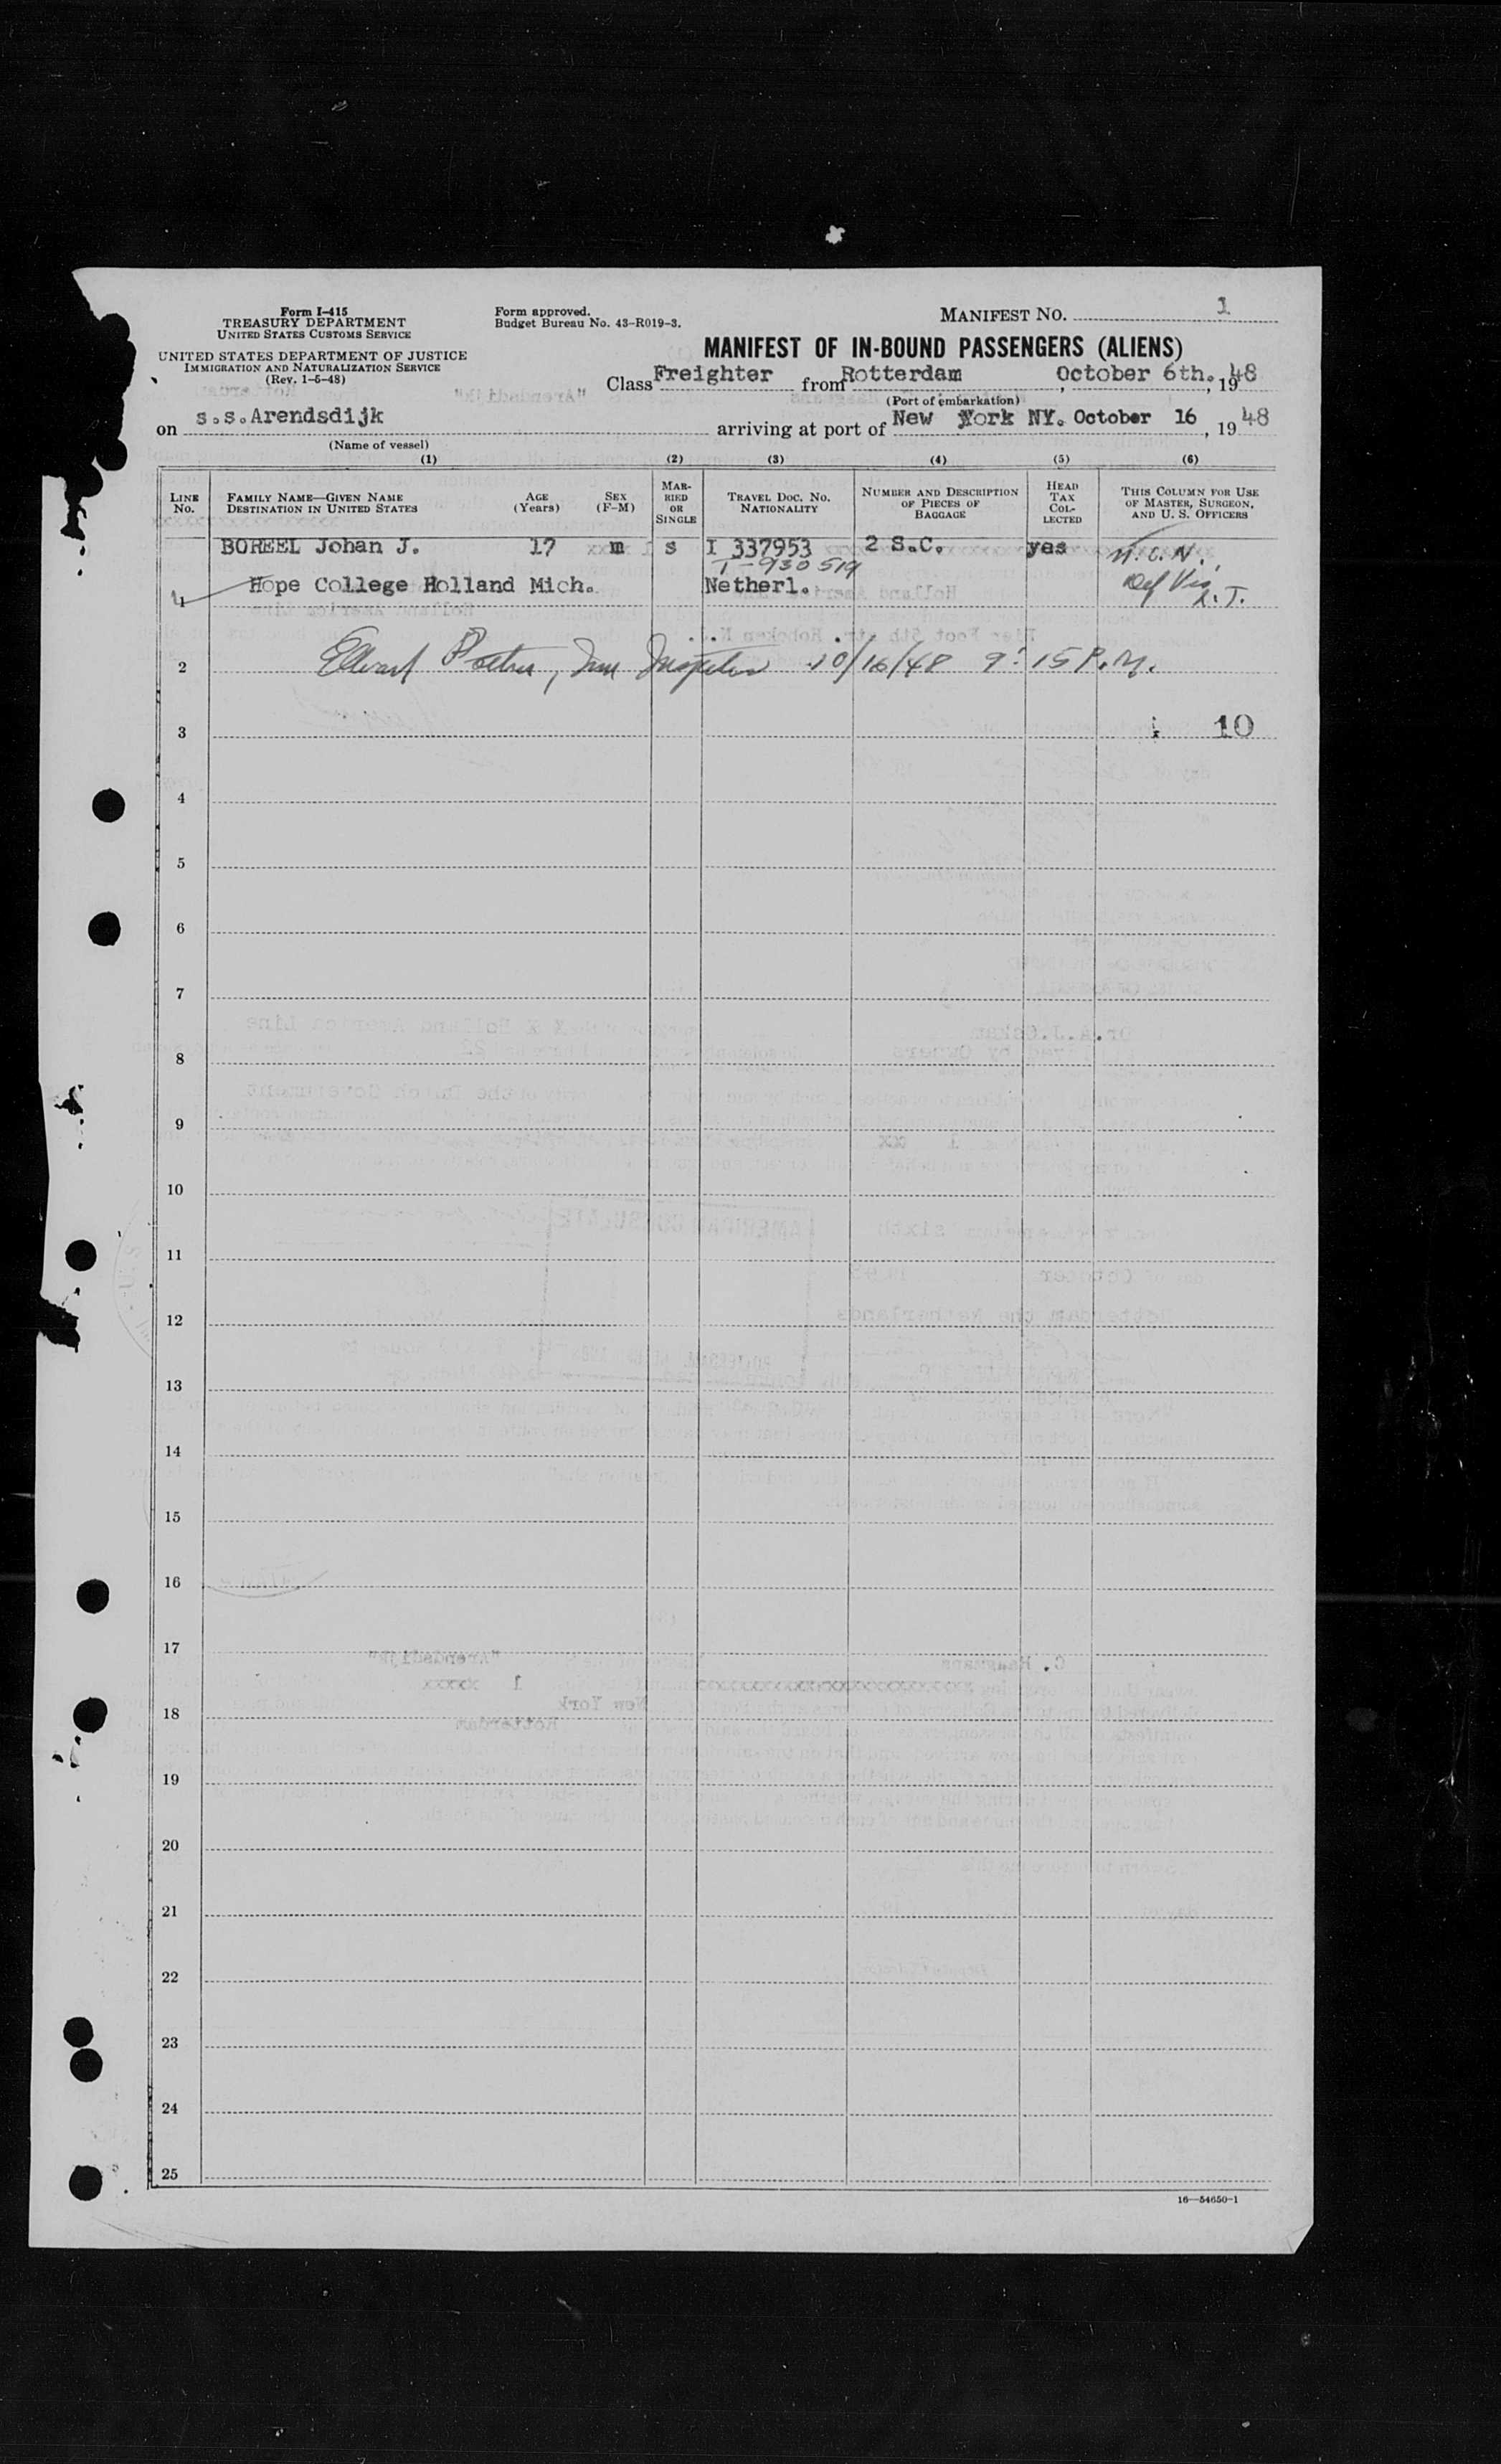 Form I-415
TREASURY DEPARTMENT
UNITED STATES CUSTOMS SERVICE
UNITED STATES DEPARTMENT OF JUSTICE
IMMIGRATION AND NATURALIZATION SERVICE
(Rev. 1-5-48)
Form approved.
Budget Bureau No. 43-R019-3.
MANIFEST NO. 1
MANIFEST OF IN-BOUND PASSENGERS (ALIENS)
Class Freighter from Rotterdam, October 6th., 19 48
(Port of embarkation)
on s.s.Arendsdijk arriving at port of New York NY. October 16, 19 48
(Name of vessel)
(1) (2) (3) (4) (5) (6)
LINE No. FAMILY NAME—GIVEN NAME DESTINATION IN UNITED STATES AGE (Years) SEX (F-M) MARRIED OR SINGLE TRAVEL DOC. NO. NATIONALITY NUMBER AND DESCRIPTION OF PIECES OF BAGGAGE HEAD TAX COLLECTED THIS COLUMN FOR USE OF MASTER, SURGEON, AND U. S. OFFICERS
BOREEL Johan J. 17 m s I 337953 2 S.C. yes
I-930519
Hope College Holland Mich. Netherl.
2 10/16/48 9:15 P.M.
3 10
4
5
6
7
8
9
10
11
12
13
14
15
16
17
18
19
20
21
22
23
24
25
16—54650-1